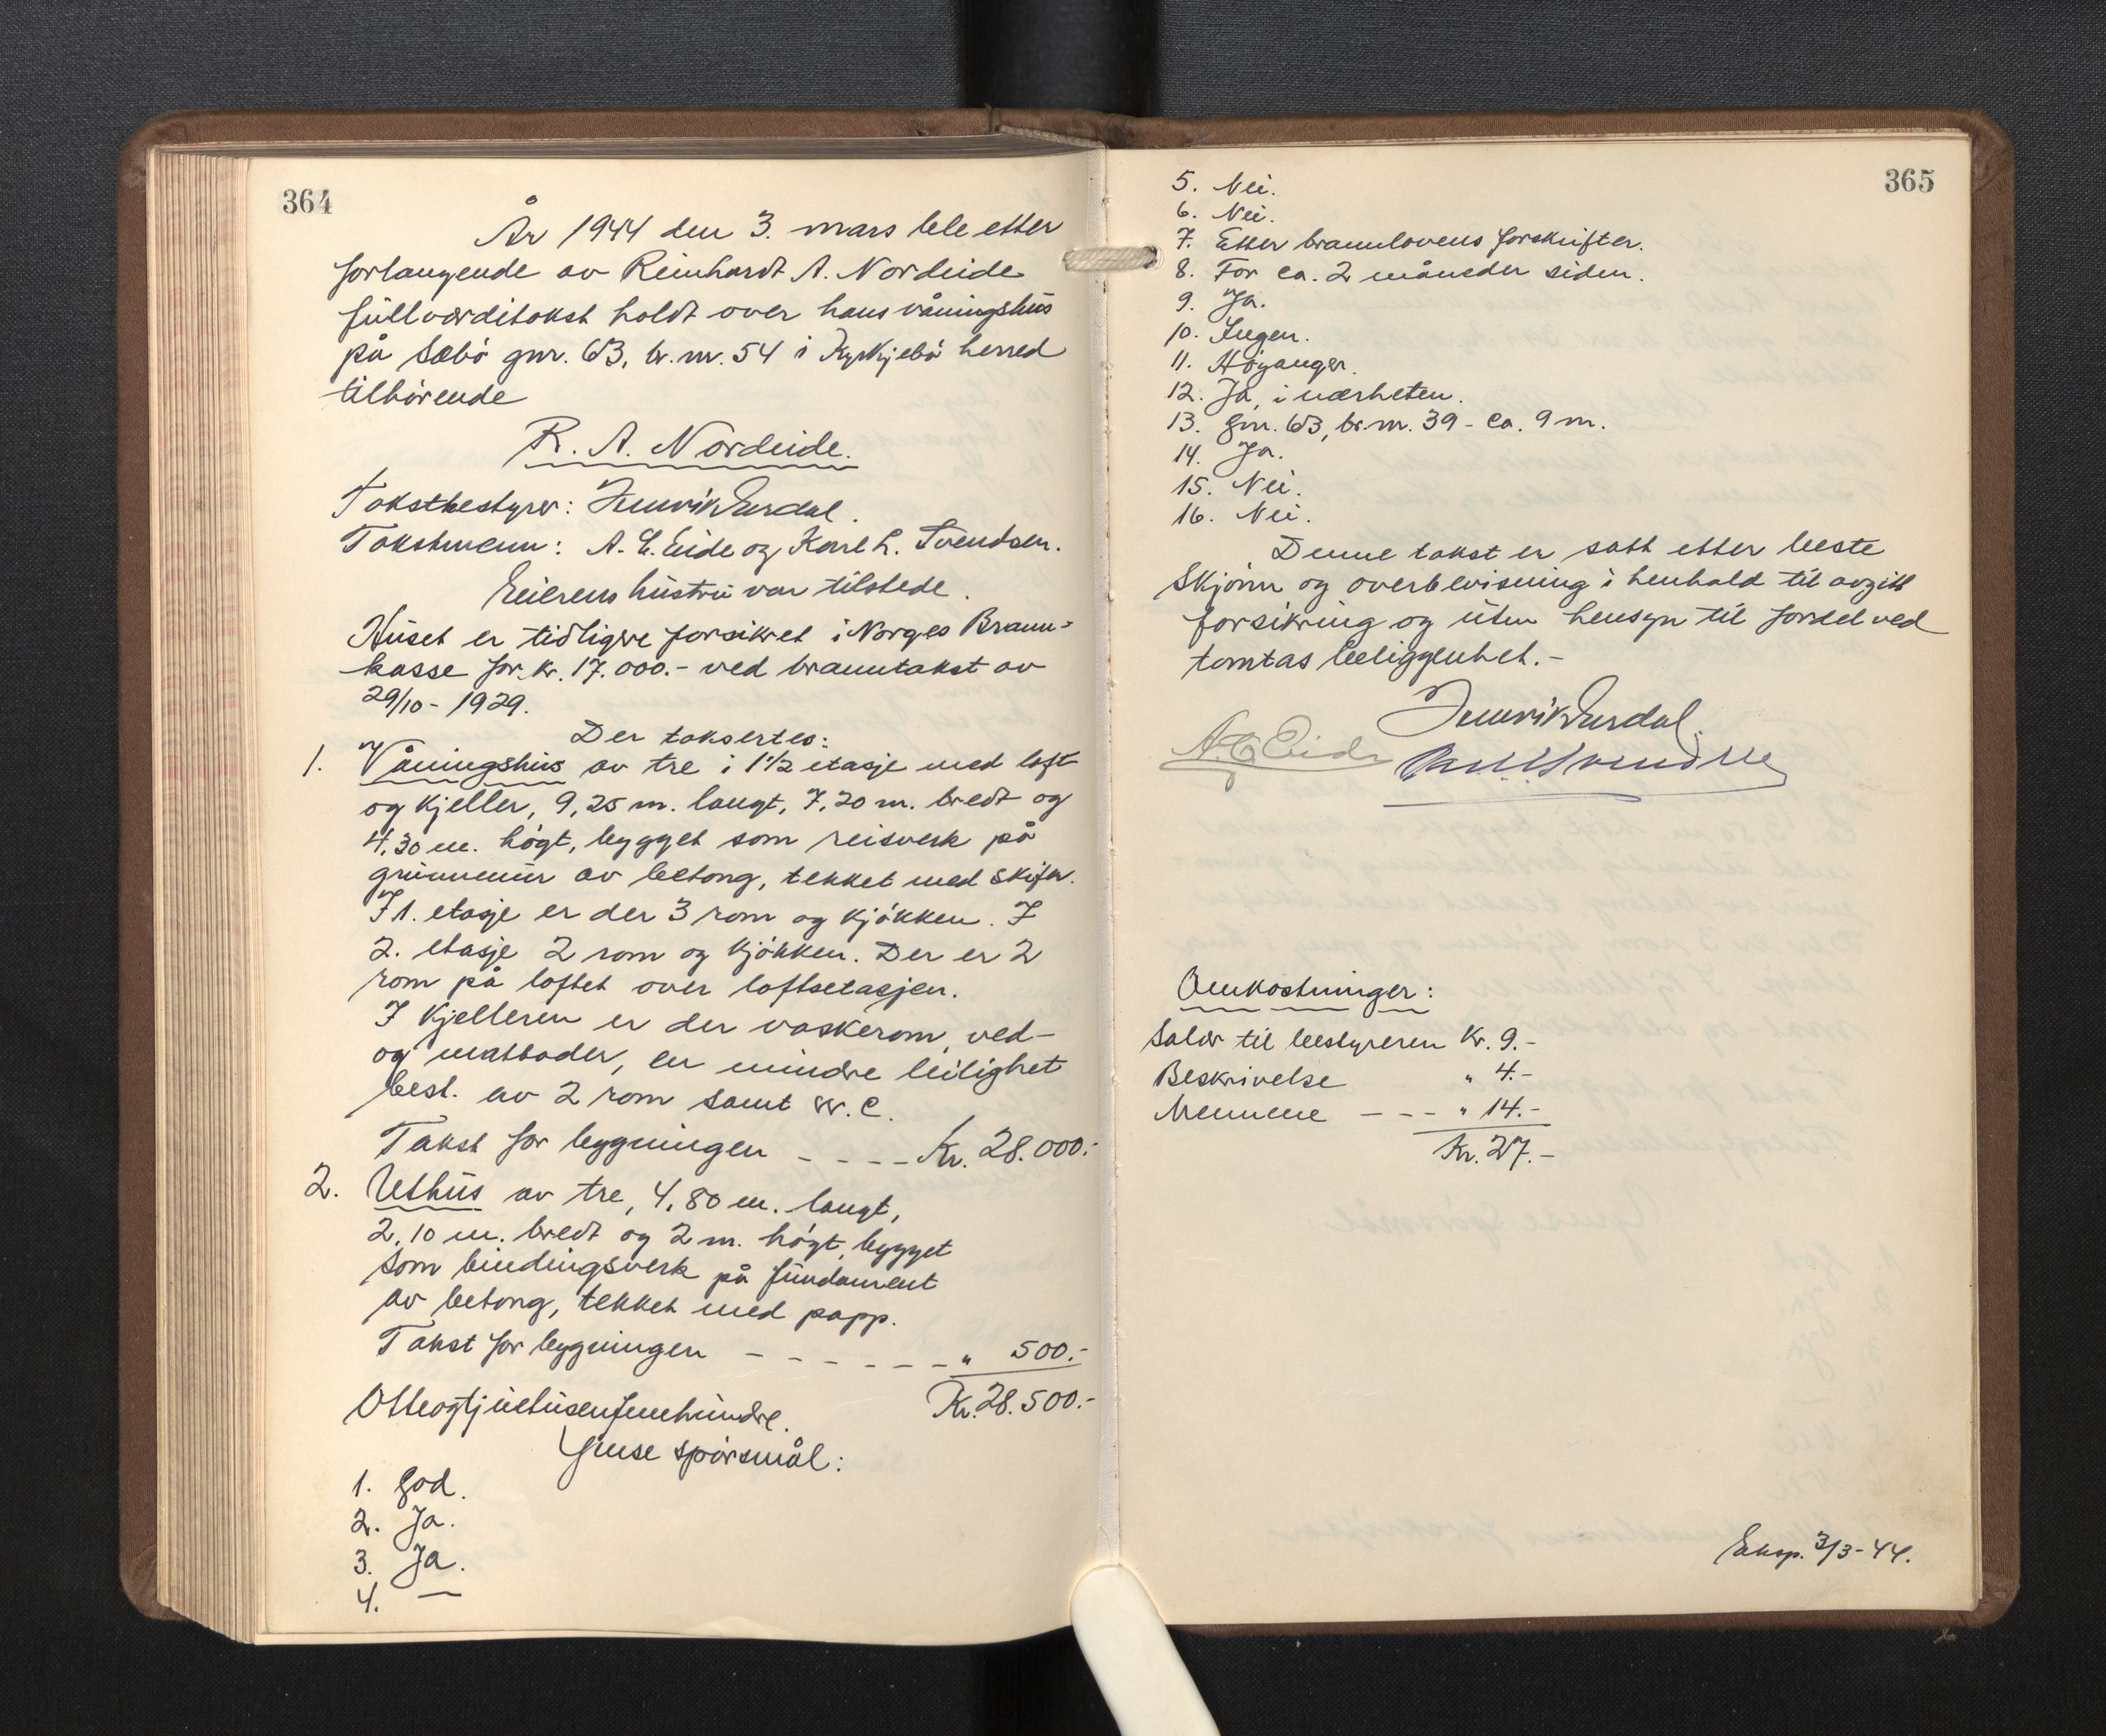 364
År 1944 den 3. mars ble etter
forlangende av Reinhardt A. Nordeide
fullverditakst holdt over hans våningshus
på Sæbö gnr. 63, br. nr. 54 i Kyrkjebö herred
tilhörende
R. A. Nordeide.
Takstbestyrer: Henrik Eurdal.
Takstmenn: A. E. Eide og Karl L. Svendsen.
Eierens hustru var tilstede.
Huset er tidligere forsikret i Norges Brann-
kasse for kr. 17.000.- ved branntakst av
29/10 - 1929.
Der taksertes:
1. Våningshus av tre i 1 1/2 etasje med loft
og kjeller, 9,25 m. langt, 7,20 m. bredt og
4,30 m. högt, bygget som reisverk på
grunnmur av betong, tekket med skifer.
I 1. etasje er der 3 rom og kjökken. I
2. etasje 2 rom og kjökken. Der er 2
rom på loftet over loftsetasjen.
I kjelleren er der vaskerom, ved-
og matboder, en mindre leilighet
best. av 2 rom samt w.c.
Takst for bygningen - - - - Kr. 28.000.-
2. Uthus av tre, 4,80 m. langt,
2,10 m. bredt og 2 m. högt, bygget
som bindingsverk på fundament
av betong, tekket med papp.
Takst for bygningen - - - - - - - " 500.-
Otteogtjuetusenfemhundre. Kr. 28.500.-
Gense spörsmål:
1. God.
2. Ja.
3. Ja.
4. —
365
5. Nei.
6. Nei.
7. Etter brannlovens forskrifter.
8. For ca. 2 måneder siden.
9. Ja.
10. Ingen.
11. Höyanger.
12. Ja, i nærheten.
13. Gnr. 63, br. nr. 39 - ca. 9 m.
14. Ja.
15. Nei.
16. Nei.
Denne takst er satt etter beste
skjönn og overbevisning i henhold til avgitt
forsikring og uten hensyn til fordel ved
tomtas beliggenhet.-
Henrik Eurdal.
A. E. Eide Karl L. Svendsen
Omkostninger:
Salær til bestyreren Kr. 9.-
Beskrivelse " 4.-
Mennene - - - " 14.-
Kr. 27.-
Eksp. 3/3-44.